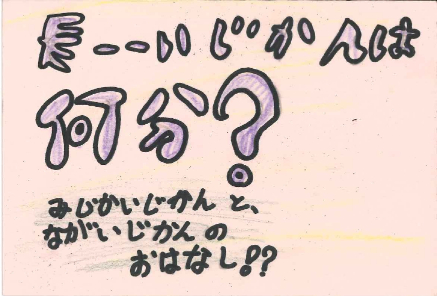 長ーーいじかんは
何分?
みじかいじかんと、
ながいじかんの
おはなし!??